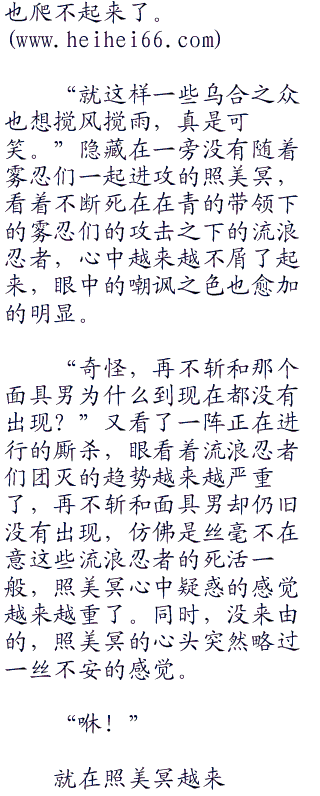 也爬不起来了。
(www.heihei66.com)
“就这样一些乌合之众
也想搅风搅雨，真是可
笑。”隐藏在一旁没有随着
雾忍们一起进攻的照美冥，
看着不断死在在青的带领下
的雾忍们的攻击之下的流浪
忍者，心中越来越不屑了起
来，眼中的嘲讽之色也愈加
的明显。
“奇怪，再不斩和那个
面具男为什么到现在都没有
出现？”又看了一阵正在进
行的厮杀，眼看着流浪忍者
们团灭的趋势越来越严重
了，再不斩和面具男却仍旧
没有出现，仿佛是丝毫不在
意这些流浪忍者的死活一
般，照美冥心中疑惑的感觉
越来越重了。同时，没来由
的，照美冥的心头突然略过
一丝不安的感觉。
“咻！”
就在照美冥越来